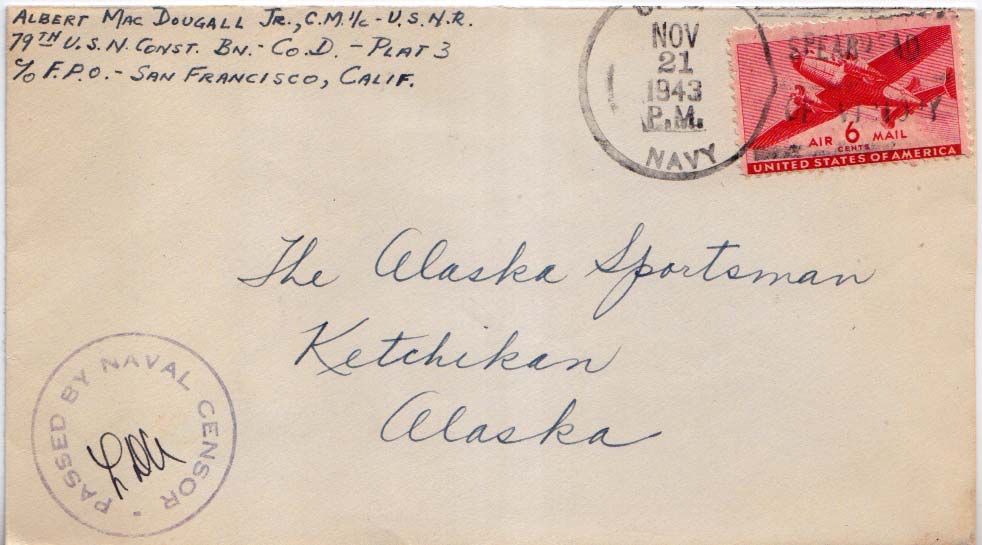 ALBERT MAC DOUGALL JR., C.M. 1/c - U.S.N.R.
79TH U.S.N. CONST. BN. - CO. D. - PLAT 3
c/o F.P.O. - SAN FRANCISCO, CALIF.
NOV
21
1943
P.M.
NAVY
AIR 6 MAIL
CENTS
UNITED STATES OF AMERICA
The Alaska Sportsman
Ketchikan
Alaska
PASSED BY NAVAL CENSOR